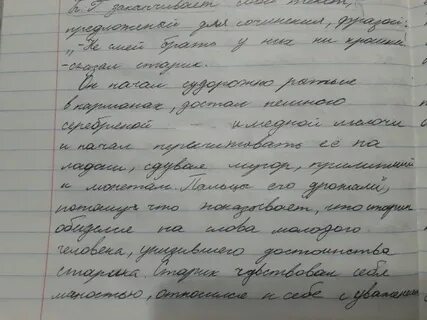 в. Г заканчивает свой текст,
предложеный для сочинения, фразой:
„-Не смей брать у них ни крошки
-сказал старик.
Он начал судорожно рыться
в карманах, достал немного
серебреной и медной мелочи
и начал пересчитывать её на
ладони, сдувая мусор, прилипший
к монетам. Пальцы его дрожали,
потому что показывает, что старик
обиделся на слова молодого
человека, унизившего достоинства
старика. Старик чувствовал себя
личностью, относился к себе с уважением